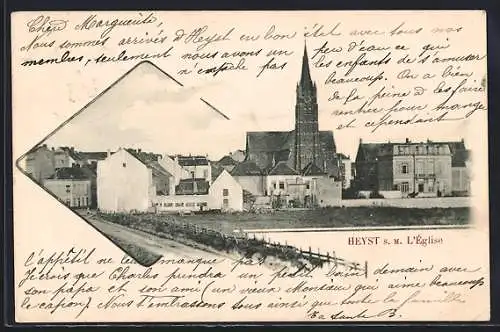 Chère Marguerite,
Nous sommes arrivés d'Heyst en bon état avec tous nos
membres, seulement nous avons un peu d'eau ce qui
n'empêche pas les enfants de s'amuser
beaucoup. On a bien
de la peine de les faire
rentrer pour manger
et cependant
HEYST s. M. L'Église
l'appétit ne leur manque pas
Je crois que Charles prendra un bain demain avec
son papa et son ami (un vieux Monsieur qui aime beaucoup
le capon.) Nous t'embrassons tous ainsi que toute la famille
Ta tante B.